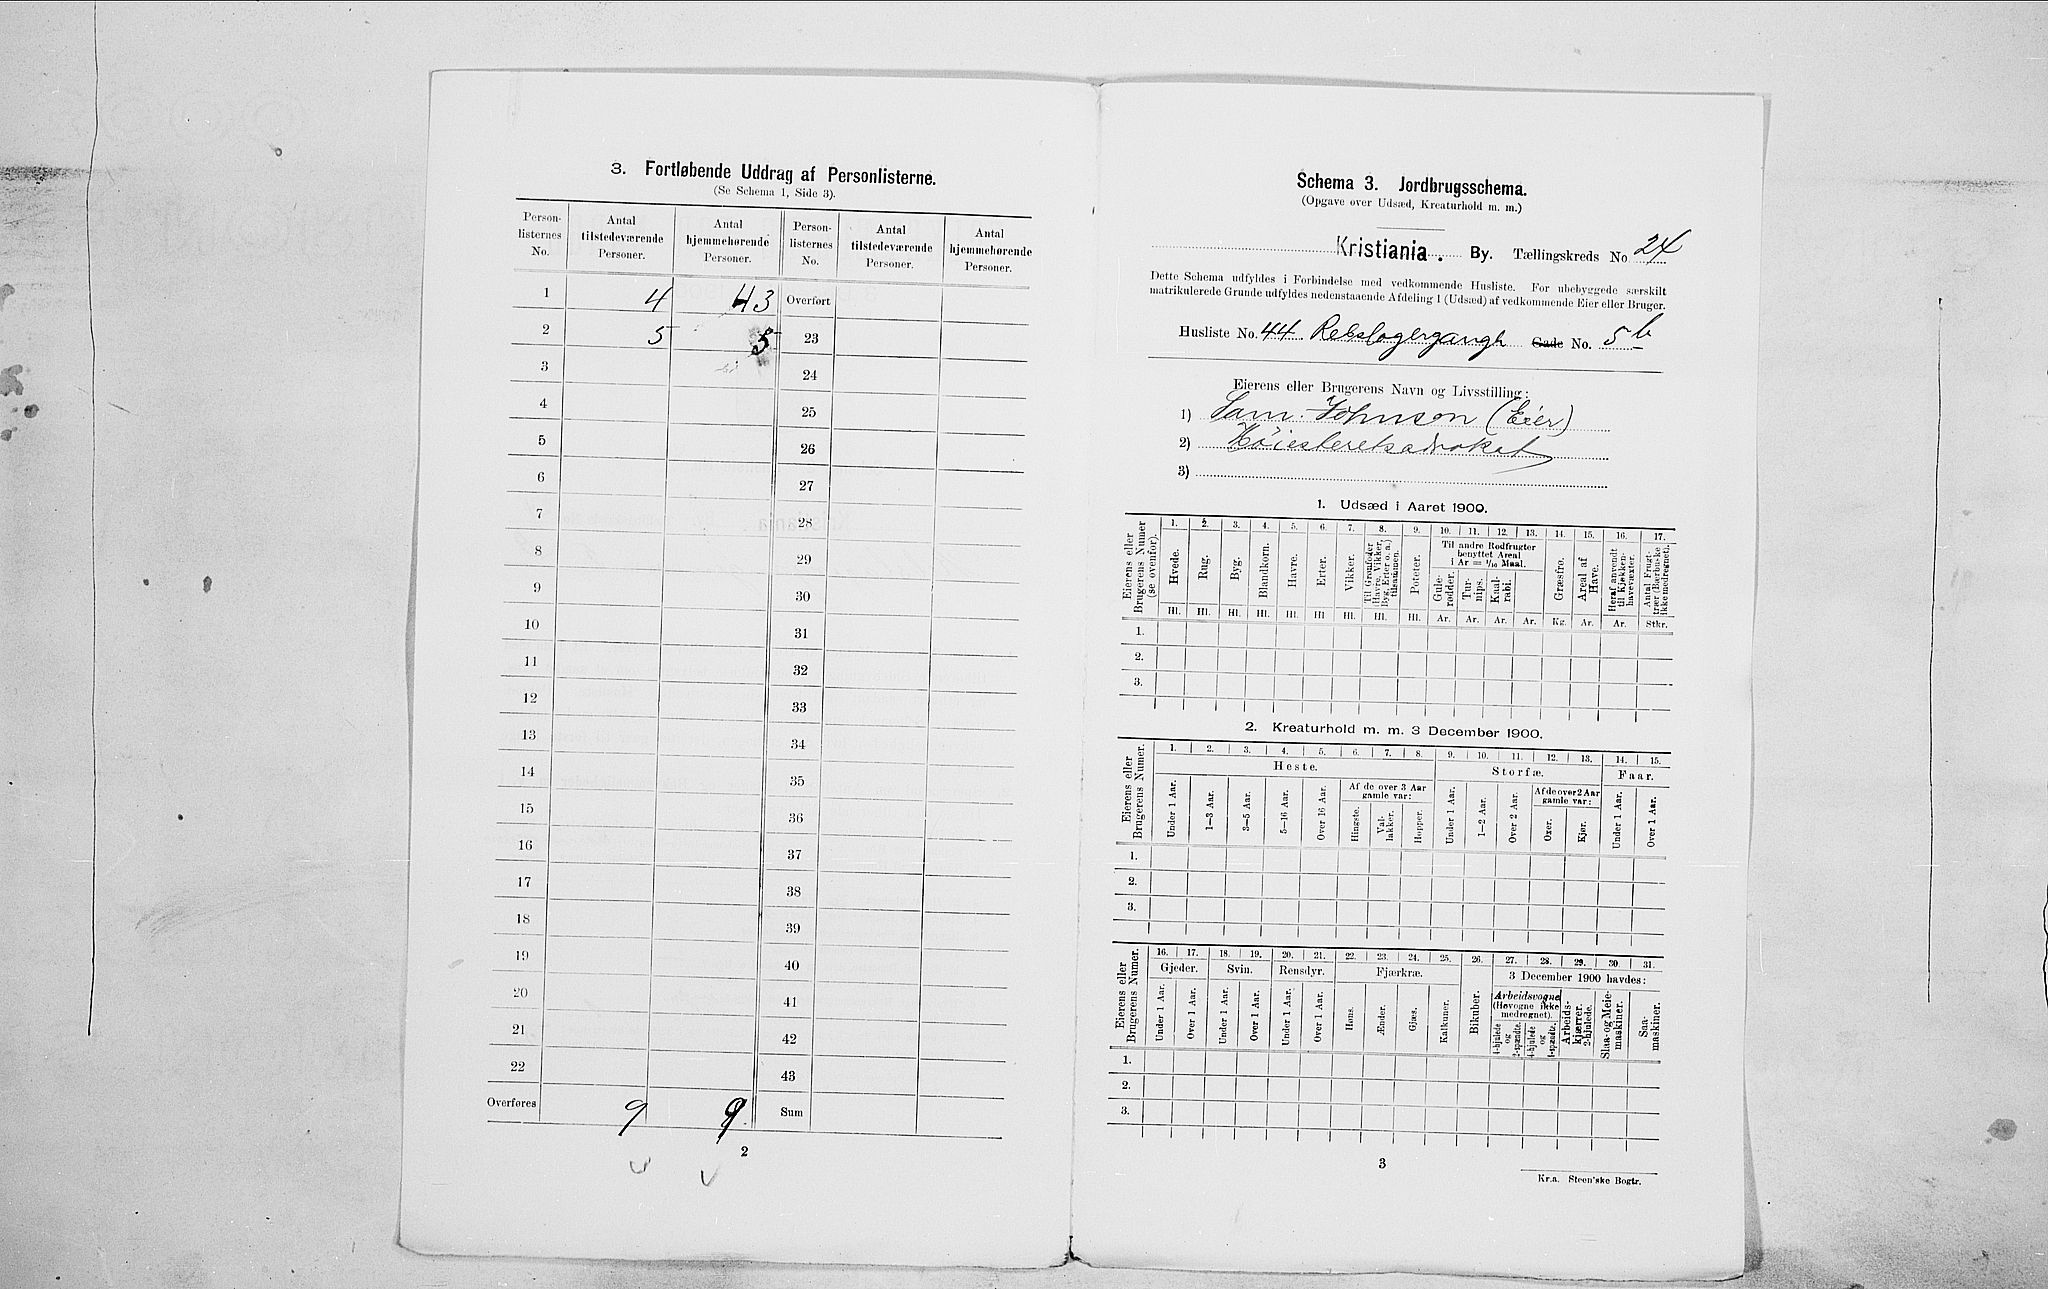 3. Fortløbende Uddrag af Personlisterne.
(Se Schema 1, Side 3).
Person-listernes No. | Antal tilstedeværende Personer. | Antal hjemmehørende Personer. | Person-listernes No. | Antal tilstedeværende Personer. | Antal hjemmehørende Personer.
1 | 4 | 43 | Overført
2 | 5 | 5 | 23
3 | 24
4 | 25
5 | 26
6 | 27
7 | 28
8 | 29
9 | 30
10 | 31
11 | 32
12 | 33
13 | 34
14 | 35
15 | 36
16 | 37
17 | 38
18 | 39
19 | 40
20 | 41
21 | 42
22 | 43
Overføres | 9 | 9 | Sum
2
Schema 3. Jordbrugsschema.
(Opgave over Udsæd, Kreaturhold m. m.)
Kristiania. By. Tællingskreds No 24
Dette Schema udfyldes i Forbindelse med vedkommende Husliste. For ubebyggede særskilt
matrikulerede Grunde udfyldes nedenstaaende Afdeling 1 (Udsæd) af vedkommende Eier eller Bruger.
Husliste No. 44 Rebslagergangh Gade No. 5b
Eierens eller Brugerens Navn og Livsstilling:
1) Sam. Johnson (Eier)
2) Høiesteretsadvokat
3)
1. Udsæd i Aaret 1900.
Eierens eller Brugerens Numer (se ovenfor).
1. 2. 3. 4. 5. 6. 7. 8. 9. 10. 11. 12. 13. 14. 15. 16. 17.
Hvede. | Rug. | Byg. | Blandkorn. | Havre. | Erter. | Vikker. | Til Grønfoder (Havre, Vikker, Byg, Erter o. a.) tilsammen. | Poteter. | Til andre Rodfrugter benyttet Areal i Ar = 1/10 Maal. | Gule-rødder. | Tur-nips. | Kaal-rabi. | Græsfrø. | Areal af Have. | Heraf anvendt til Kjøkken-havevæxter. | Antal Frugt-trær (Bærbuske ikke medregnet).
Hl. Hl. Hl. Hl. Hl. Hl. Hl. Hl. Hl. Ar. Ar. Ar. Ar. Kg. Ar. Ar. Stkr.
1.
2.
3.
2. Kreaturhold m. m. 3 December 1900.
Eierens eller Brugerens Numer.
1. 2. 3. 4. 5. 6. 7. 8. 9. 10. 11. 12. 13. 14. 15.
Heste. | Storfæ. | Faar.
Af de over 3 Aar gamle var: | Af de over 2 Aar gamle var:
Under 1 Aar. | 1—3 Aar. | 3—5 Aar. | 5—16 Aar. | Over 16 Aar. | Hingste. | Val-lakker. | Hopper. | Under 1 Aar. | 1—2 Aar. | Over 2 Aar. | Oxer. | Kjør. | Under 1 Aar. | Over 1 Aar.
1.
2.
3.
Eierens eller Brugerens Numer.
16. 17. 18. 19. 20. 21. 22. 23. 24. 25. 26. 27. 28. 29. 30. 31.
Gjeder. | Svin. | Rensdyr. | Fjærkræ. | Bikuber. | 3 December 1900 havdes:
Under 1 Aar. | Over 1 Aar. | Under 1 Aar. | Over 1 Aar. | Under 1 Aar. | Over 1 Aar. | Høns. | Ænder. | Gjæs. | Kalkuner. | Arbeidsvogne (Høvogne ikke medregnet). | 4-hjulede og 2-spændte. | 4-hjulede og 1-spændte. | Arbeids-kjærrer, 2-hjulede. | Slaa- og Meie-maskiner. | Saa-maskiner.
1.
2.
3.
3
Kr.a. Steen'ske Bogtr.